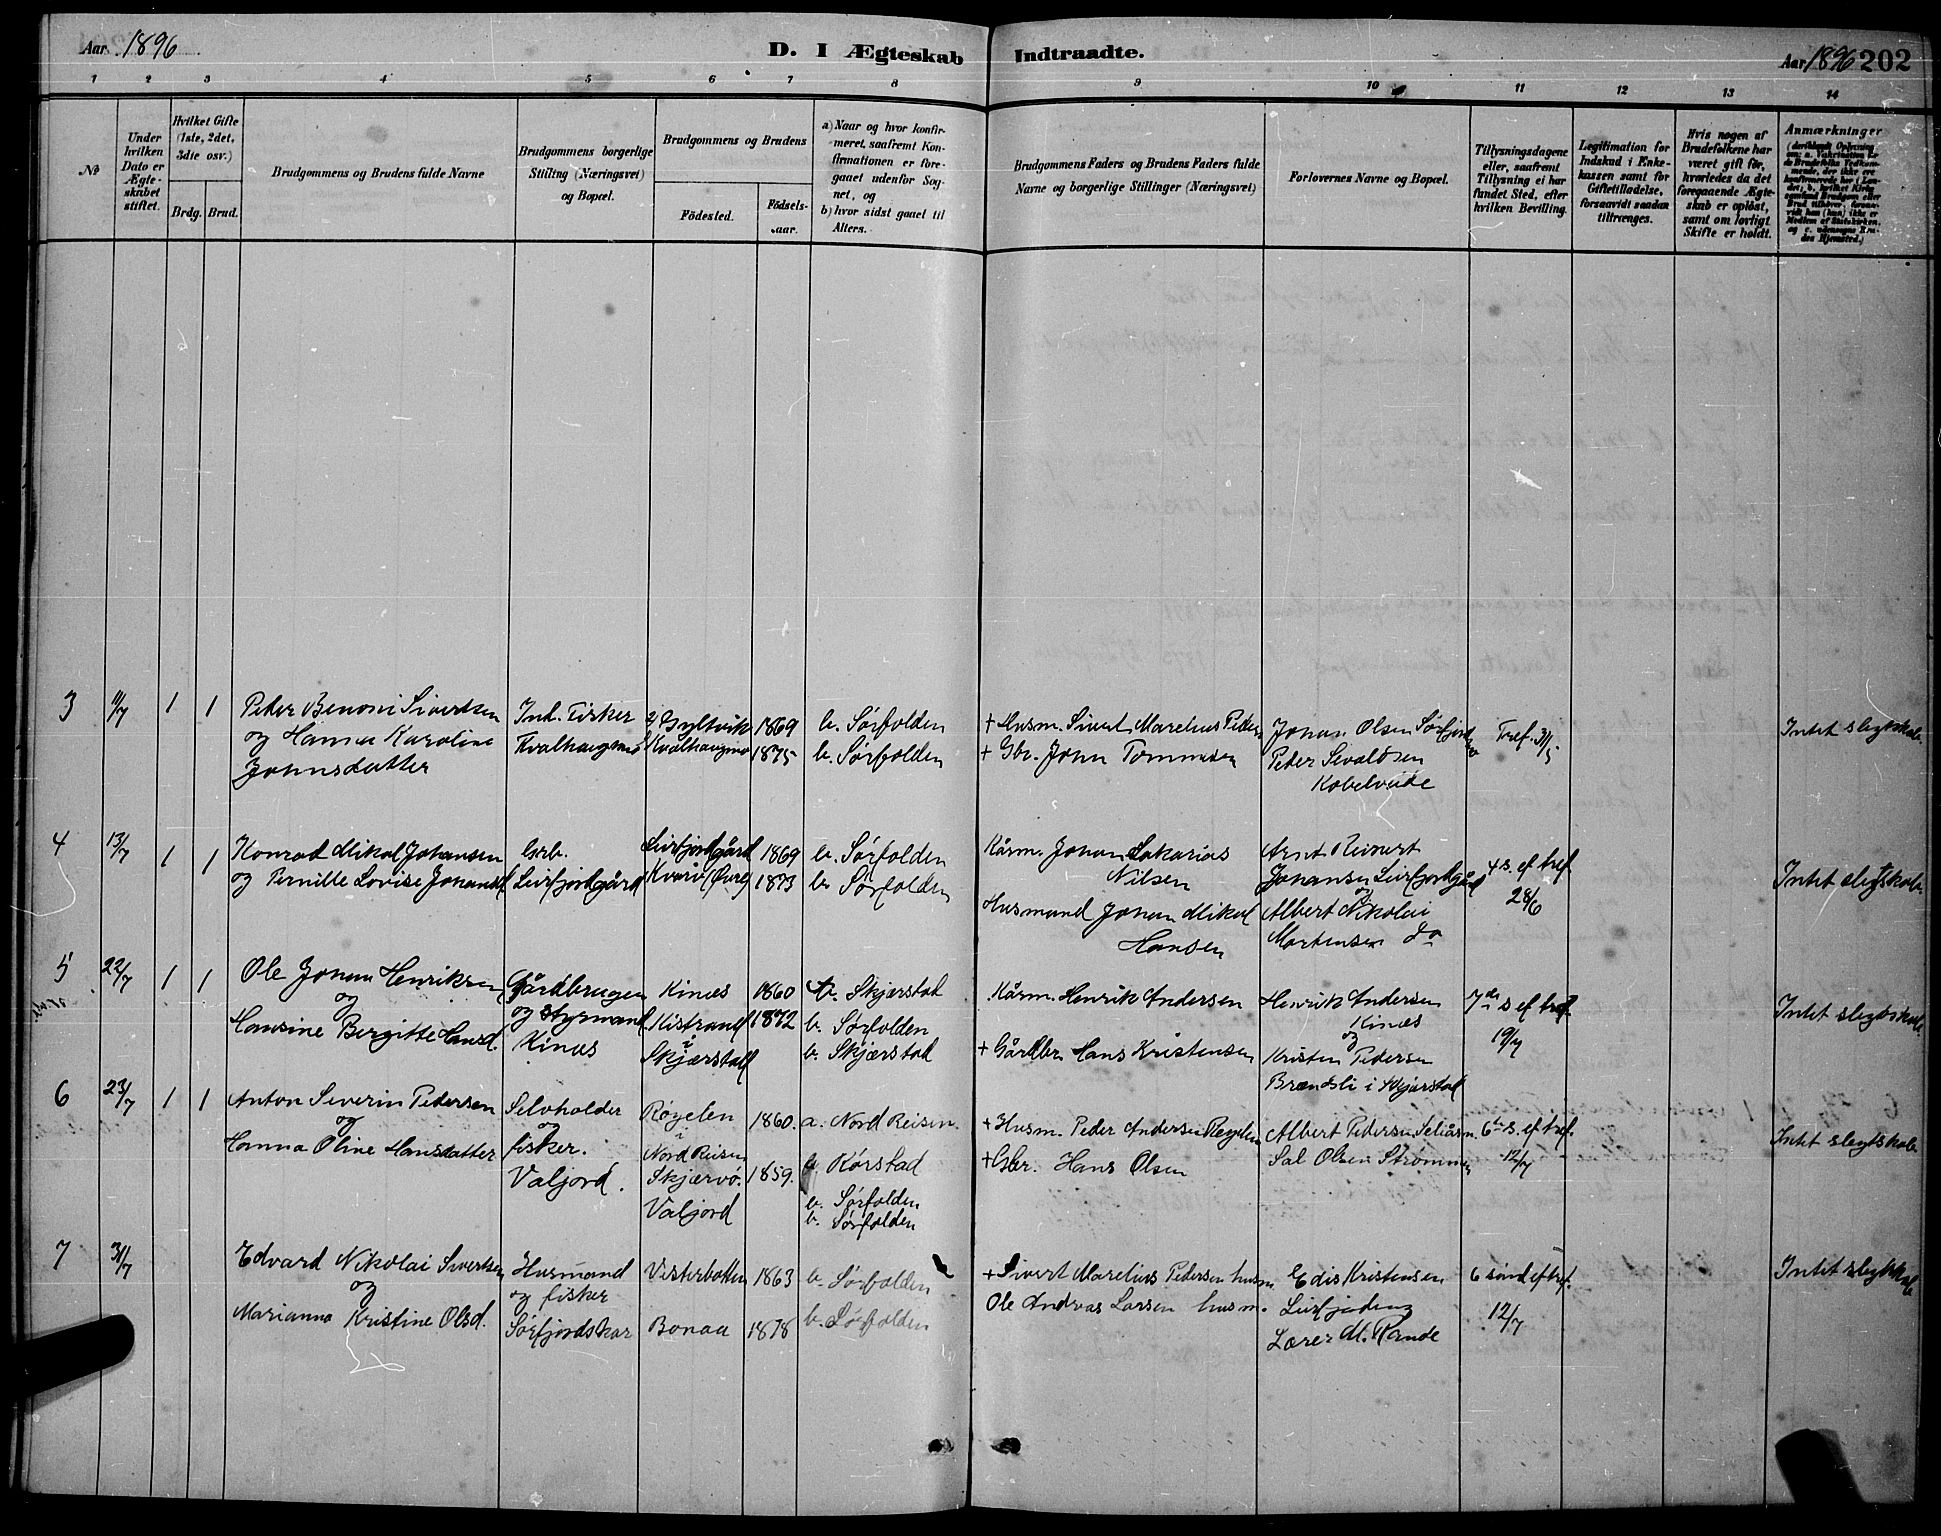 Aar 1896
D. I Ægteskab Indtraadte.
Aar 1896 202
1 2 3 4 5 6 7 8 9 10 11 12 13 14
No
Under hvilken Dato er Ægte-skabet stiftet.
Hvilket Gifte (1ste, 2det, 3die osv.)
Brdg. Brud.
Brudgommens og Brudens fulde Navne
Brudgommens borgerlige Stilling (Næringsvei) og Bopæl.
Brudgommens og Brudens
Födested.
Födsels-aar.
a) Naar og hvor konfir-
meret, saafremt Kon-
firmationen er fore-
gaaet udenfor Sog-
net, og
b) hvor sidst gaaet til
Alters.
Brudgommens Faders og Brudens Faders fulde
Navne og borgerlige Stillinger (Næringsvei)
Forlovernes Navne og Bopæl.
Tillysningsdagene
eller, saafremt
Tillysning ei har
fundet Sted, efter
hvilken Bevilling.
Legitimation for
Indskud i Enke-
kassen samt for
Giftetilladelse,
forsaavidt saadan
tiltrænges.
Hvis nogen af
Brudefolkene har
været gift før,
hvorledes da det
foregaaende Ægte-
skab er opløst,
samt om lovligt
Skifte er holdt.
Anmærkninger
3 11/7 1 1
Peter Benoni Sivertsen
og Hanna Karoline
Johnsdatter
Ind. Fisker
Kvalhaugmo
Gyltvik 1869
Kvalhaugmo 1875
b. Sørfolden
b. Sørfolden
+ Husm. Sivert Marelius Peders
+ Gbr. John Tommesen
Johan Olsen Sørfjorden
Peder Sivaldsen
Kobelveide
Tref. 31/5
Intet slegtskab.
4 13/7 1 1
Konrad Mikal Johansen
og Pernille Lovise Johansd
Grb.
Leirfjordgård
Leirfjordgård 1869
Kvarv (Øvre) 1873
b. Sørfolden
b. Sørfolden
Kårm. Johan Sakarias
Nilsen
Husmand Johan Mikal
Hansen
Arnt Reinert
Johansen Leirfjordgård
og
Albert Nikolai
Martensen Do
4 s. ef tref
28/6
Intet slegtskab.
5 22/7 1 1
Ole Johan Henriksen
og
Hansine Bergitte Hansd.
Gårdbruger
og styrmand
Kines
Kines 1860
Kistrand 1872
i
Skjærstad
b. Skjærstad
b. Sørfolden
b. Skjærstad
Kårm. Henrik Andersen
+ Gårdbr Hans Kristensen
Henrik Andersen
Kines
og
Kristen Pedersen
Brændsli i Skjærstad
7de s ef tref
19/7
Intet slegtskab.
6 23/7 1 1
Anton Severin Pedersen
og
Hanna Oline Hansdatter
Selvholder
og
fisker.
Valjord.
Røyelen 1860.
i
Nord Reisen
Skjærvø. 1859.
Valjord
a. Nord Reisen.
a Rørstad
b. Sørfolden
b. Sørfolden
+ Husm. Peder Andersen Røyelen
+ Gbr. Hans Olsen
Albert Pedersen Seliåsm.
Sal Olsen Strømmen
6te s. ef tref.
12/7
Intet slegtskab
7 31/7
Edvard Nikolai Sivertsen
og
Marianna Kristine Olsd.
Husmand
og fisker
Sørfjordskar
Vesterbotten 1863
Bonaa 1878
b. Sørfolden
b. Sørfolden
+ Sivert Marelius Pedersen husm.
Ole Andreas Larsen husm.
Edis Kristensen
Leirfjorden
Lærer M. Rande
6 sønd ef tref.
12/7
Intet slegtskab